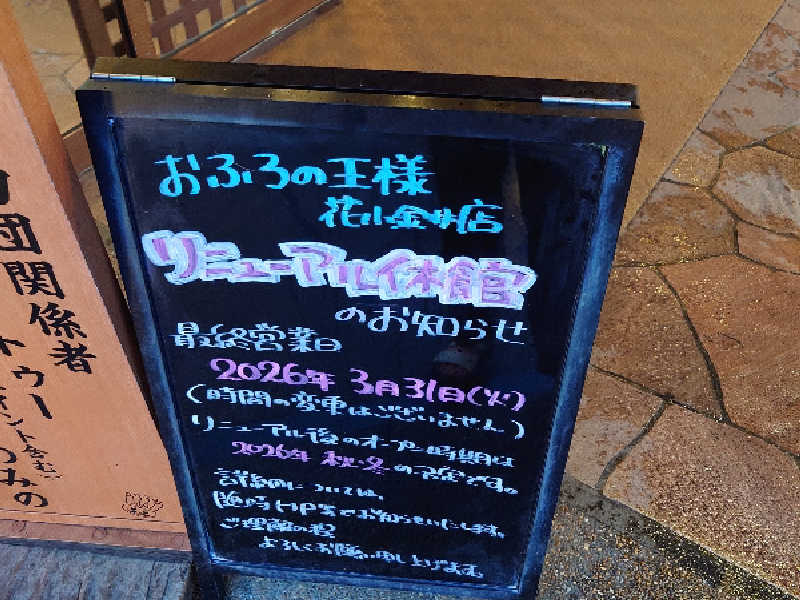 おふろの王様
花小金井店
リニューアル休館
のお知らせ
最終営業日
2026年 3月31日(火)
(時間の変更はございません)
リニューアル後のオープン時期は
2026年 秋・冬の予定です。
詳細については、
随時HP等でお知らせいたします。
ご理解の程
よろしくお願い申し上げます。
団関係者
トゥー
イント含む
のみの